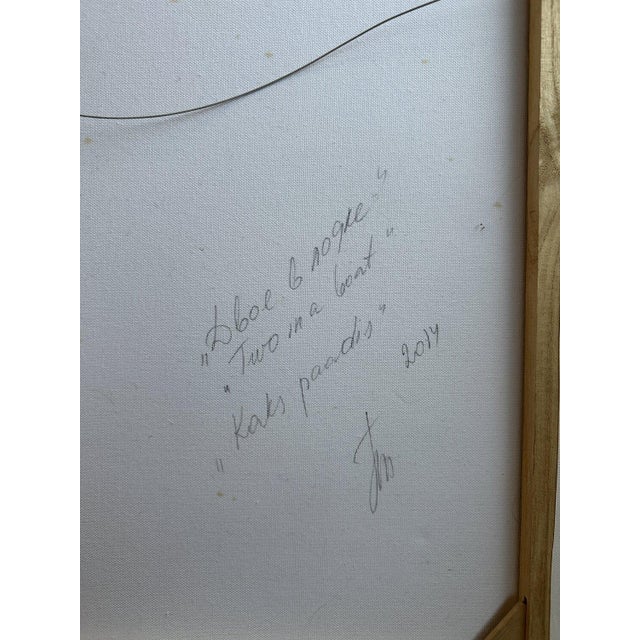 „Двое в лодке"
"Two in a boat"
"Kaks paadis"
2014